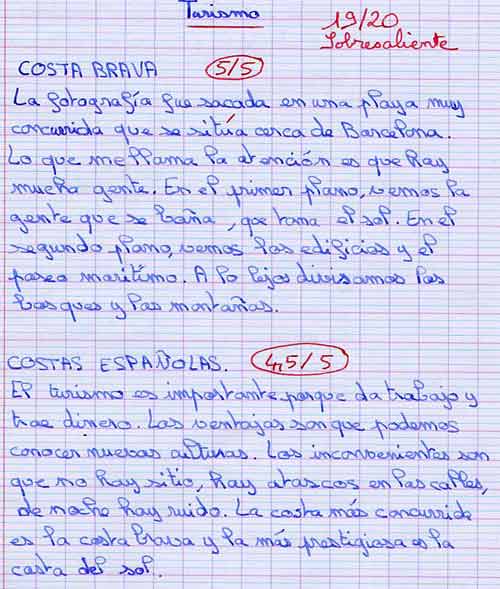 Turismo
19/20
Sobresaliente
COSTA BRAVA 5/5
La fotografía fue sacada en una playa muy
concurrida que se sitúa cerca de Barcelona.
Lo que me llama la atención es que hay
mucha gente. En el primer plano, vemos la
gente que se baña, que toma el sol. En el
segundo plano, vemos los edificios y el
paseo marítimo. A lo lejos divisamos los
bosques y las montañas.
COSTAS ESPAÑOLAS. 4,5/5
El turismo es importante porque da trabajo y
trae dinero. Las ventajas son que podemos
conocer nuevas culturas. Los inconvenientes son
que no hay sitio, hay atascos en las calles,
de noche hay ruido. La costa más concurrida
es la costa brava y la más prestigiosa es la
costa del sol.